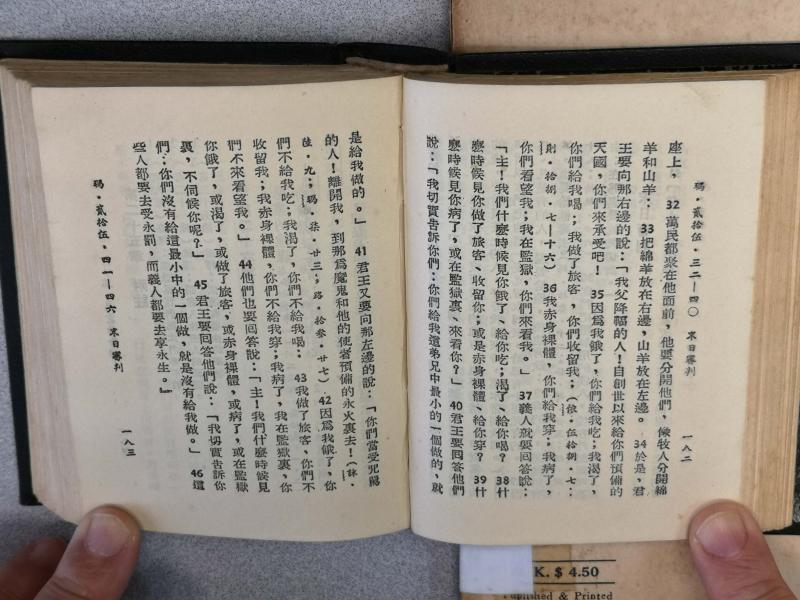 瑪·貳拾伍·三二—四〇 末日審判 一八二
座上， 32 萬民都聚在他面前，他要分開他們，像牧人分開綿
羊和山羊： 33把綿羊放在右邊，山羊放在左邊。 34於是，君
王要向那右邊的說：「我父降福的人！自創世以來給你們預備的
天國，你們來承受吧！ 35因爲我餓了，你們給我吃；我渴了，
你們給我喝；我做了旅客，你們收留我；（依·伍拾捌·七；
則·拾捌·七—十六）36我赤身裸體，你們給我穿；我病了，
你們看顧我；我在監獄，你們來看我。」 37義人就要回答說：
「主！我們什麽時候見你餓了、給你吃；渴了、給你喝？ 38什
麽時候見你做了旅客、收留你；或是赤身裸體、給你穿？ 39什
麽時候見你病了，或在監獄裏、來看你？」 40君王要回答他們
說：「我切實告訴你們：你們給我這弟兄中最小的一個做的，就
是給我做的。」 41君王又要向那左邊的說：「你們當受咒罵
的人！離開我，到那爲魔鬼和他的使者預備的永火裏去！（詠·
陸·九；瑪·柒·廿三；路·拾叁·廿七）42因爲我餓了，你
們不給我吃；我渴了，你們不給我喝； 43我做了旅客，你們不
收留我；我赤身裸體，你們不給我穿；我病了，我在監獄裏，你
們不來看望我。」 44他們也要回答說：「主！我們什麽時候見
你餓了，或渴了，或做了旅客，或赤身裸體，或病了，或在監獄
裏，不伺候你呢？」 45君王要回答他們說：「我切實告訴你
們：你們沒有給這最小中的一個做，就是沒有給我做。」 46這
些人都要去受永罰，而義人都要去享永生。」
瑪·貳拾伍·四一—四六 末日審判 一八三
K. $ 4.50
Published & Printed